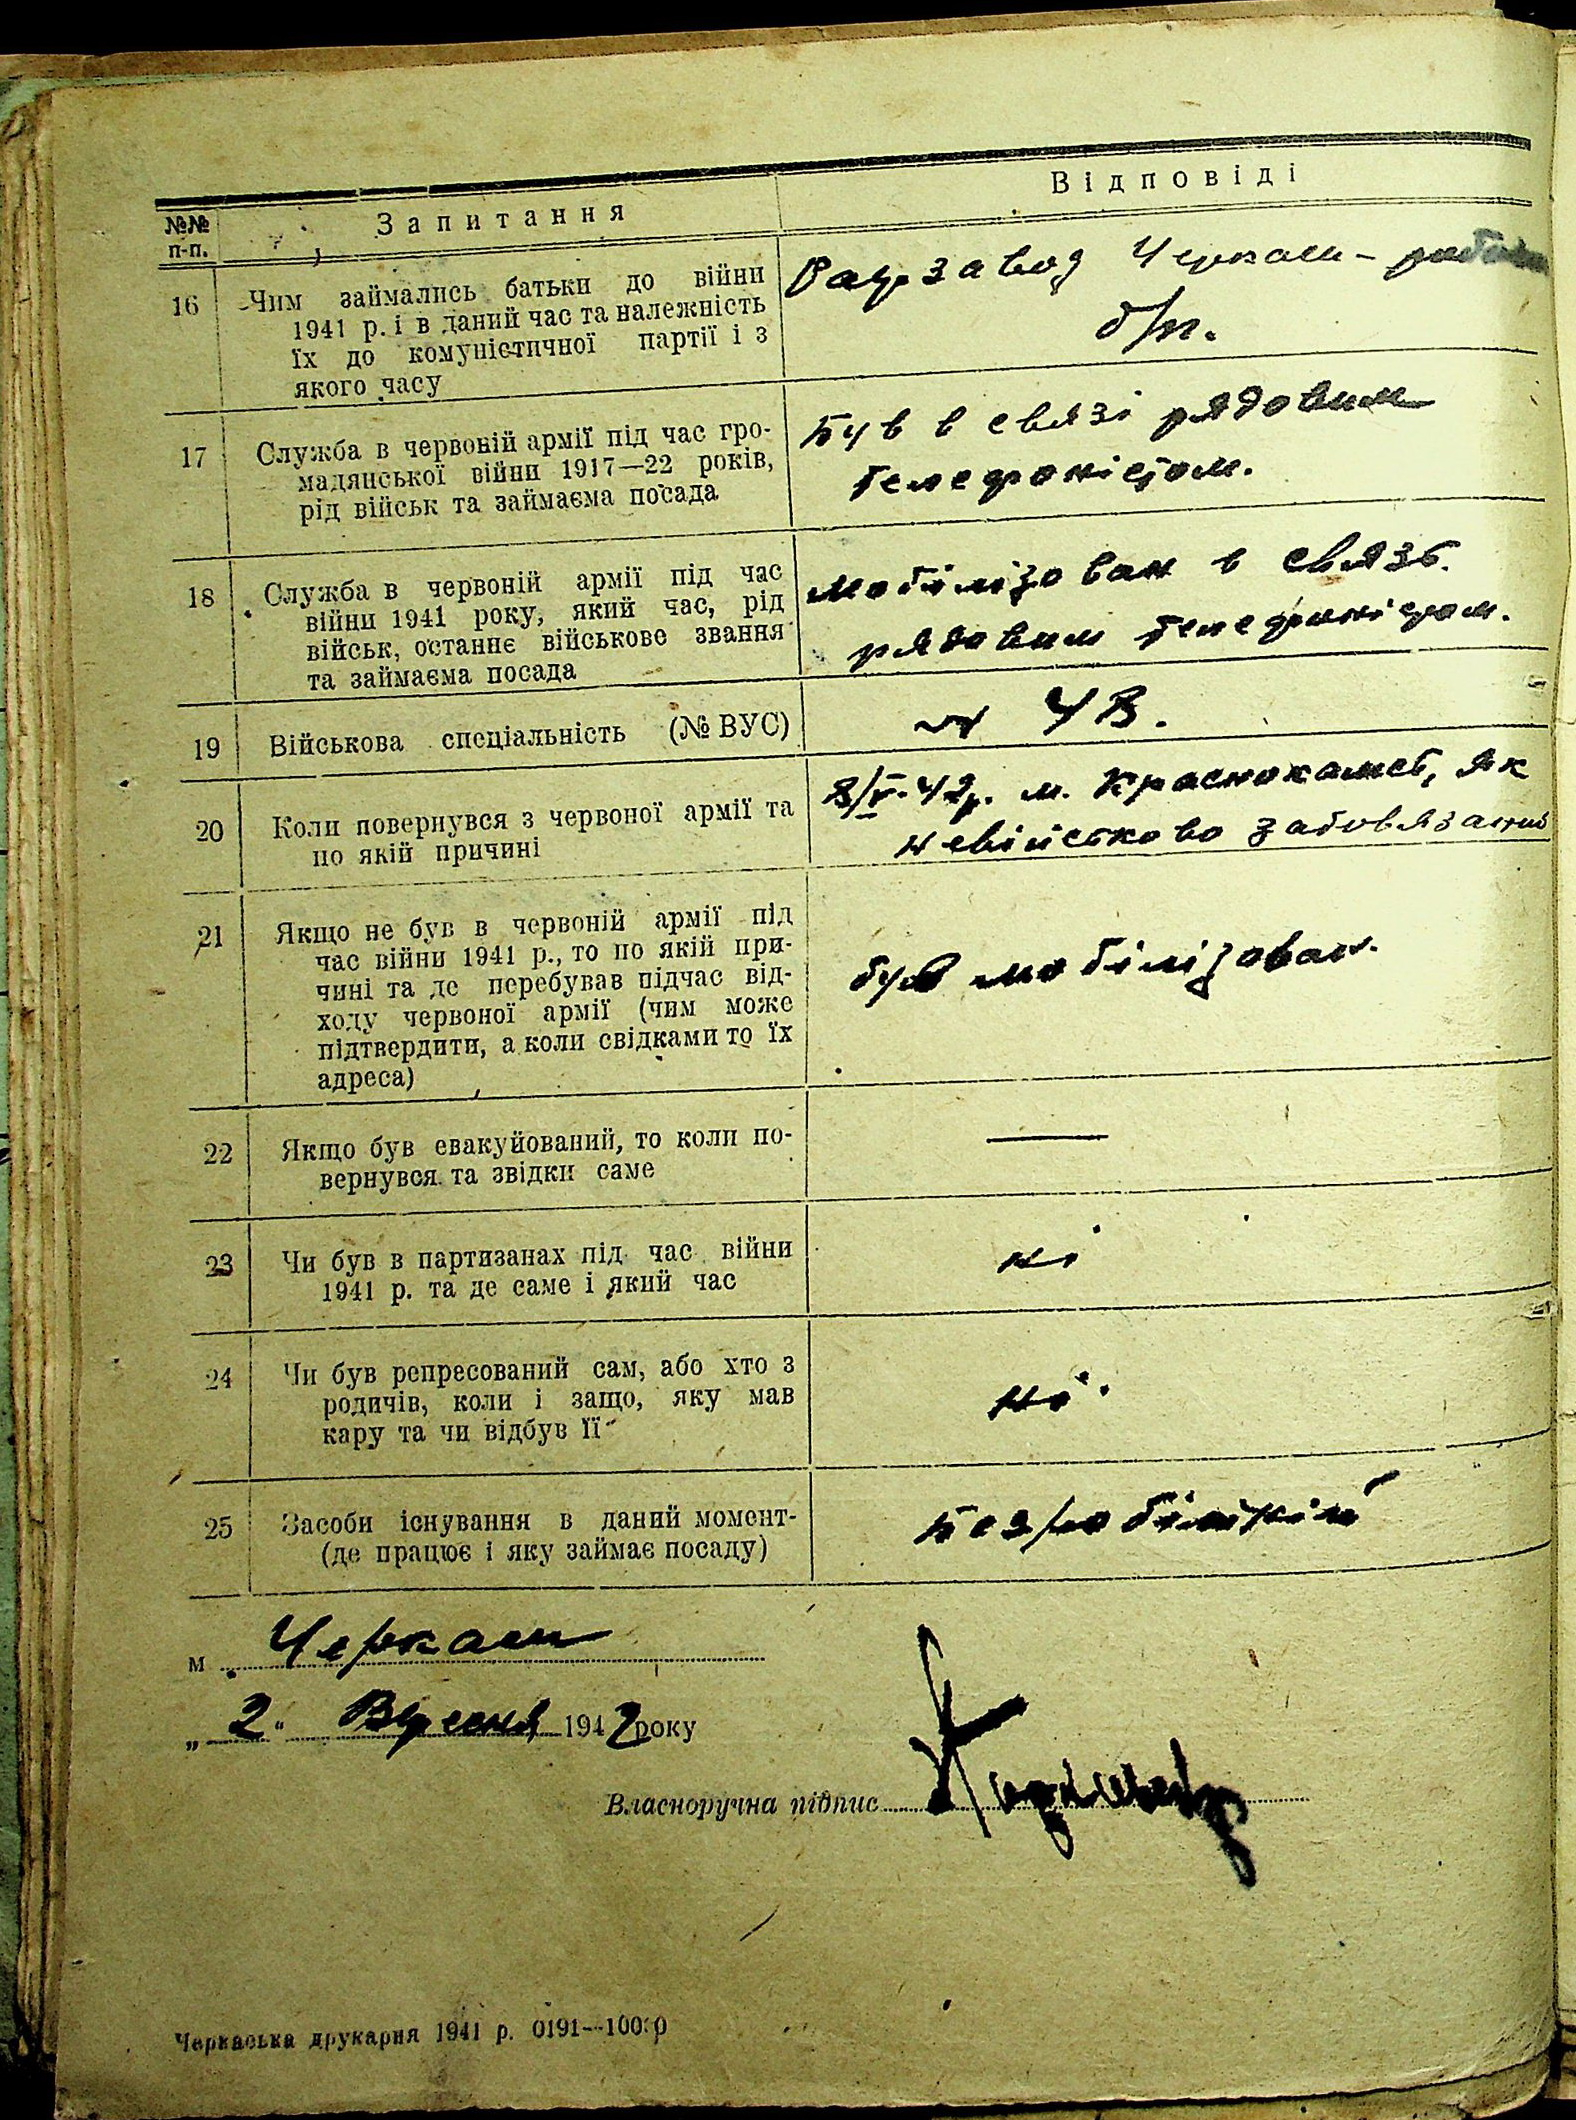 №№ п-п. Запитання Відповіді
16 Чим займались батьки до війни
1941 р. і в даний час та належність
їх до комуністичної партії і з
якого часу
завод Черкаси –
б/п.
17 Служба в червоній армії під час гро-
мадянської війни 1917—22 років,
рід військ та займаєма посада
Був в связі рядовим
телефоністом.
18 Служба в червоній армії під час
війни 1941 року, який час, рід
військ, останнє військове звання
та займаєма посада
мобілізован в связь.
рядовим телефоністом.
19 Військова спеціальність (№ ВУС)
20 Коли повернувся з червоної армії та
по якій причині
м. Краснокамст, як
невійськово забовязаний
21 Якщо не був в червоній армії під
час війни 1941 р., то по якій при-
чині та де перебував підчас від-
ходу червоної армії (чим може
підтвердити, а коли свідками то їх
адреса)
був мобілізован.
22 Якщо був евакуйований, то коли по-
вернувся та звідки саме
—
23 Чи був в партизанах під час війни
1941 р. та де саме і який час
ні
24 Чи був репресований сам, або хто з
родичів, коли і защо, яку мав
кару та чи відбув її
ні.
25 Засоби існування в даний момент-
(де працює і яку займає посаду)
Безробітній
м. Черкаси
„2“ Вересня 1942 року
Власноручна підпис
Черкаська друкарня 1941 р. 0191—100:р